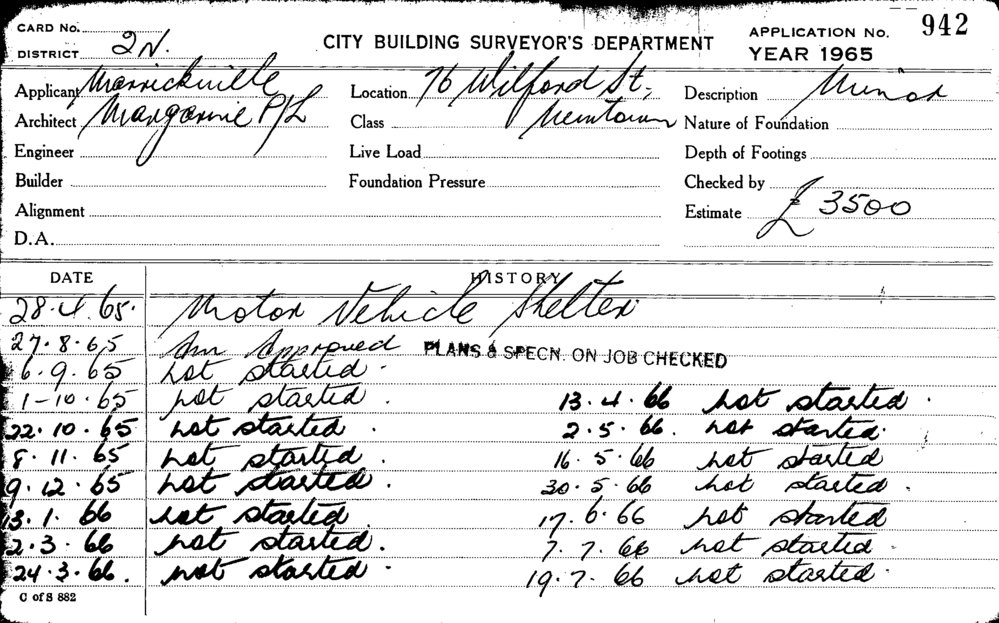 CARD No.
DISTRICT 2N.
CITY BUILDING SURVEYOR'S DEPARTMENT
APPLICATION No. 942
YEAR 1965
Applicant Marrickville
Architect Margarine P/L
Engineer
Builder
Alignment
D.A.
Location 76 Wilford St,
Class Newtown
Live Load
Foundation Pressure
Description Minor
Nature of Foundation
Depth of Footings
Checked by
Estimate £ 3500
DATE HISTORY
28.4.65. Motor Vehicle Shelter
27.8.65 Approved PLANS & SPECN. ON JOB CHECKED
6.9.65 not started.
1-10.65 not started.
22.10.65 not started.
8.11.65 not started.
9.12.65 not started.
13.1.66 not started.
2.3.66 not started.
24.3.66. not started.
13.4.66 not started.
2.5.66. not started.
16.5.66 not started
30.5.66 not started.
17.6.66 not started
7.7.66 not started.
19.7.66 not started.
C of S 882